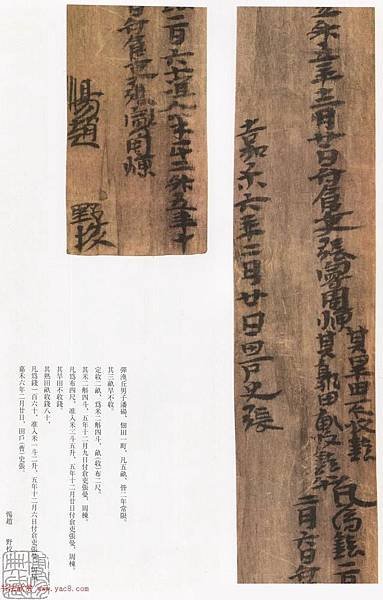 五年十二月廿日付倉吏張曼周棟其旱田不收錢
其熟田畝收錢八十凡爲錢一百
二月六日付
嘉禾六年二月廿日田戶史張
一百六十准入米一斗二升五年十
日付倉吏張曼周棟
惕趙 野校
彈溲丘男子潘碭，佃田一町，凡五畝，皆二年常限。
其三畝旱不收。
定收二畝，爲米二斛四斗，畝（收）布二尺。
其米二斛四斗，五年十二月九日付倉吏張曼、周棟。
凡爲布四尺，准入米二斗五升，五年十二月廿日付倉吏張曼、周棟。
其旱田不收錢。
其熟田畝收錢八十，
凡爲錢一百六十，准入米一斗二升，五年十二月六日付倉吏張曼、周棟。
嘉禾六年二月廿日，田戶（曹）史張
惕、趙 野校
书法欣赏 www.yac8.com